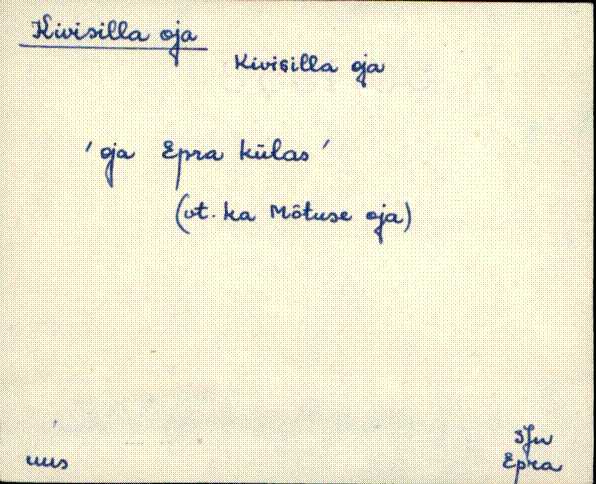 Kivisilla oja
Kivisilla oja
'oja Epra külas'
(vt. ka Mõtuse oja)
uus
SJn
Epra